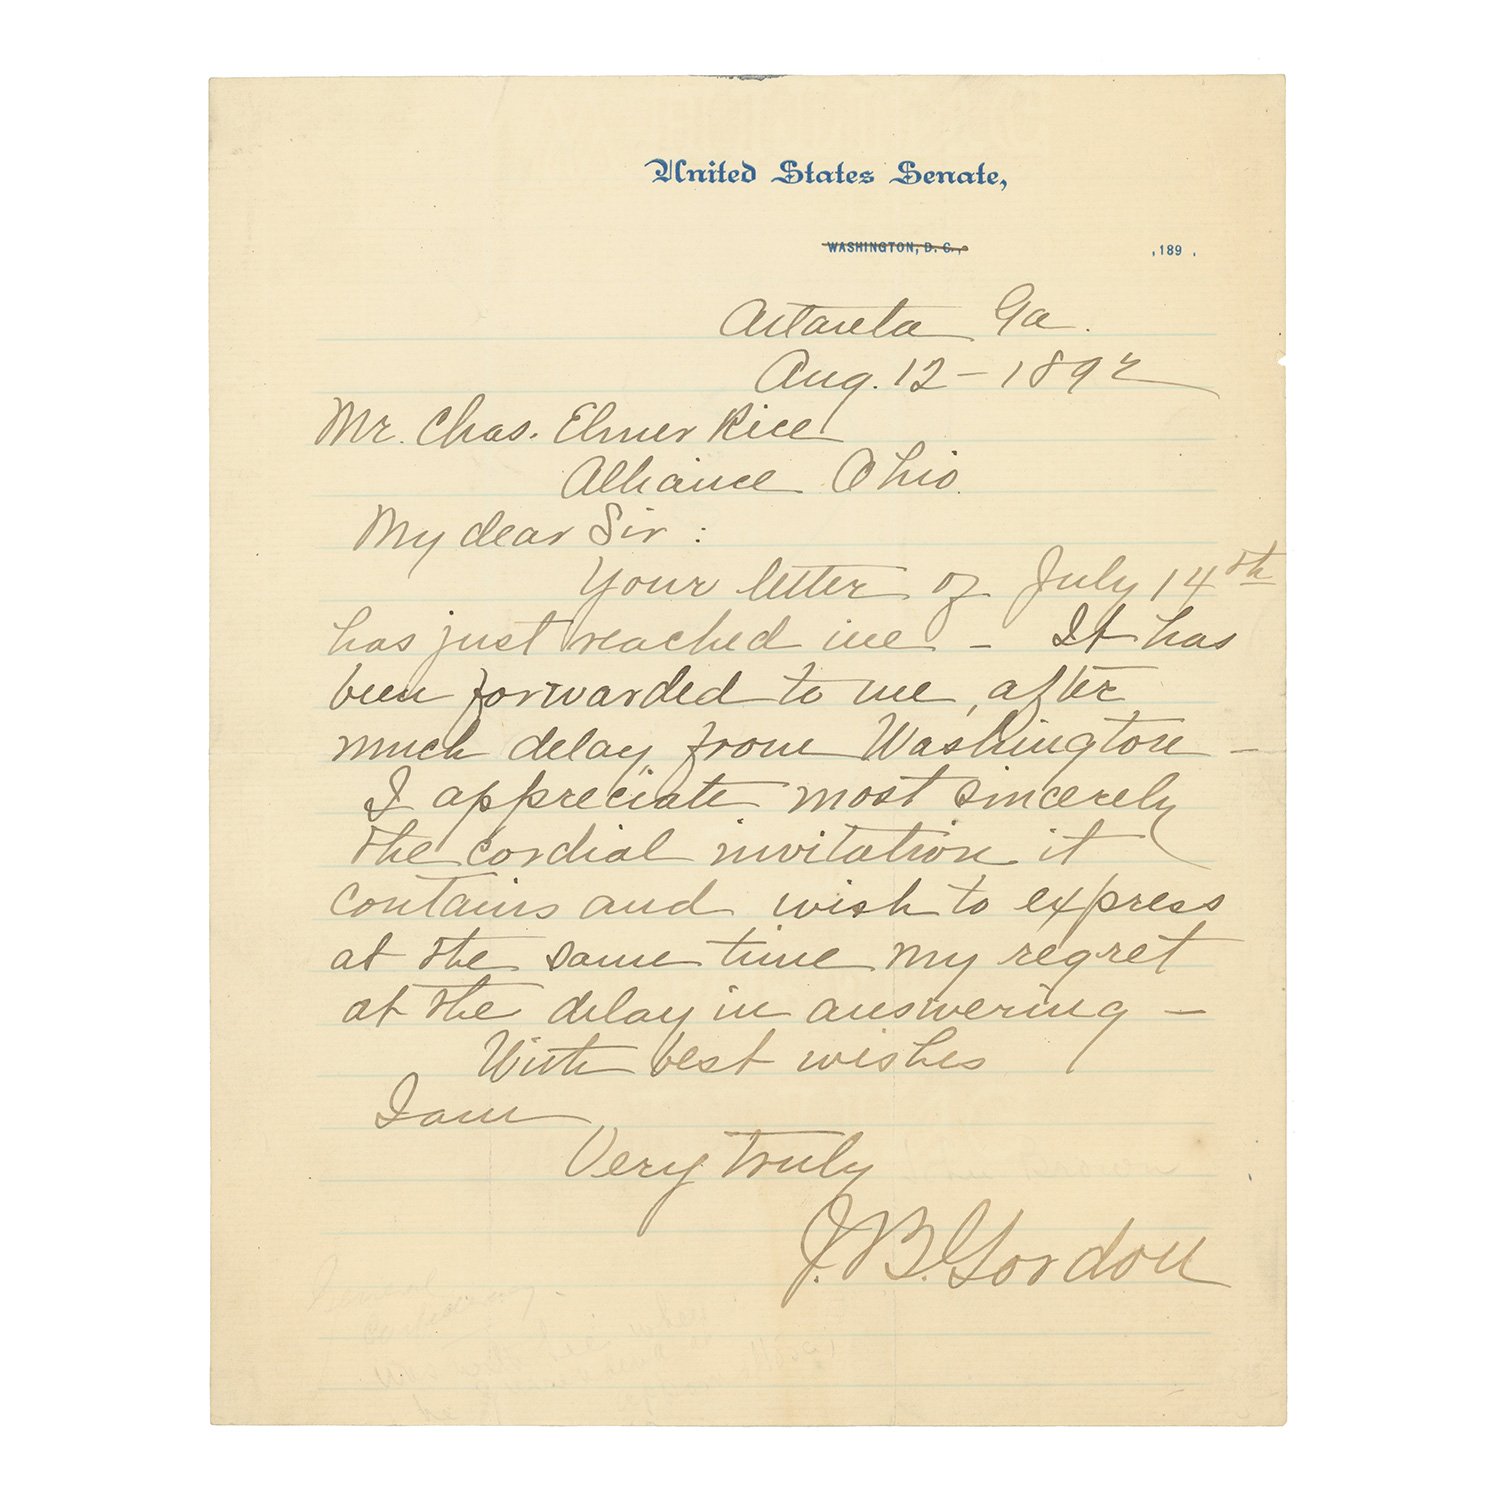 United States Senate,
WASHINGTON, D. C., ,189 .
Atlanta Ga.
Aug. 12 - 1892
Mr. Chas. Elmer Rice
Alliance Ohio.
My dear Sir :
Your letter of July 14th
has just reached me - It has
been forwarded to me, after
much delay, from Washington -
I appreciate most sincerely
the cordial invitation it
contains and wish to express
at the same time my regret
at the delay in answering -
With best wishes
I am
Very truly
J. B. Gordon